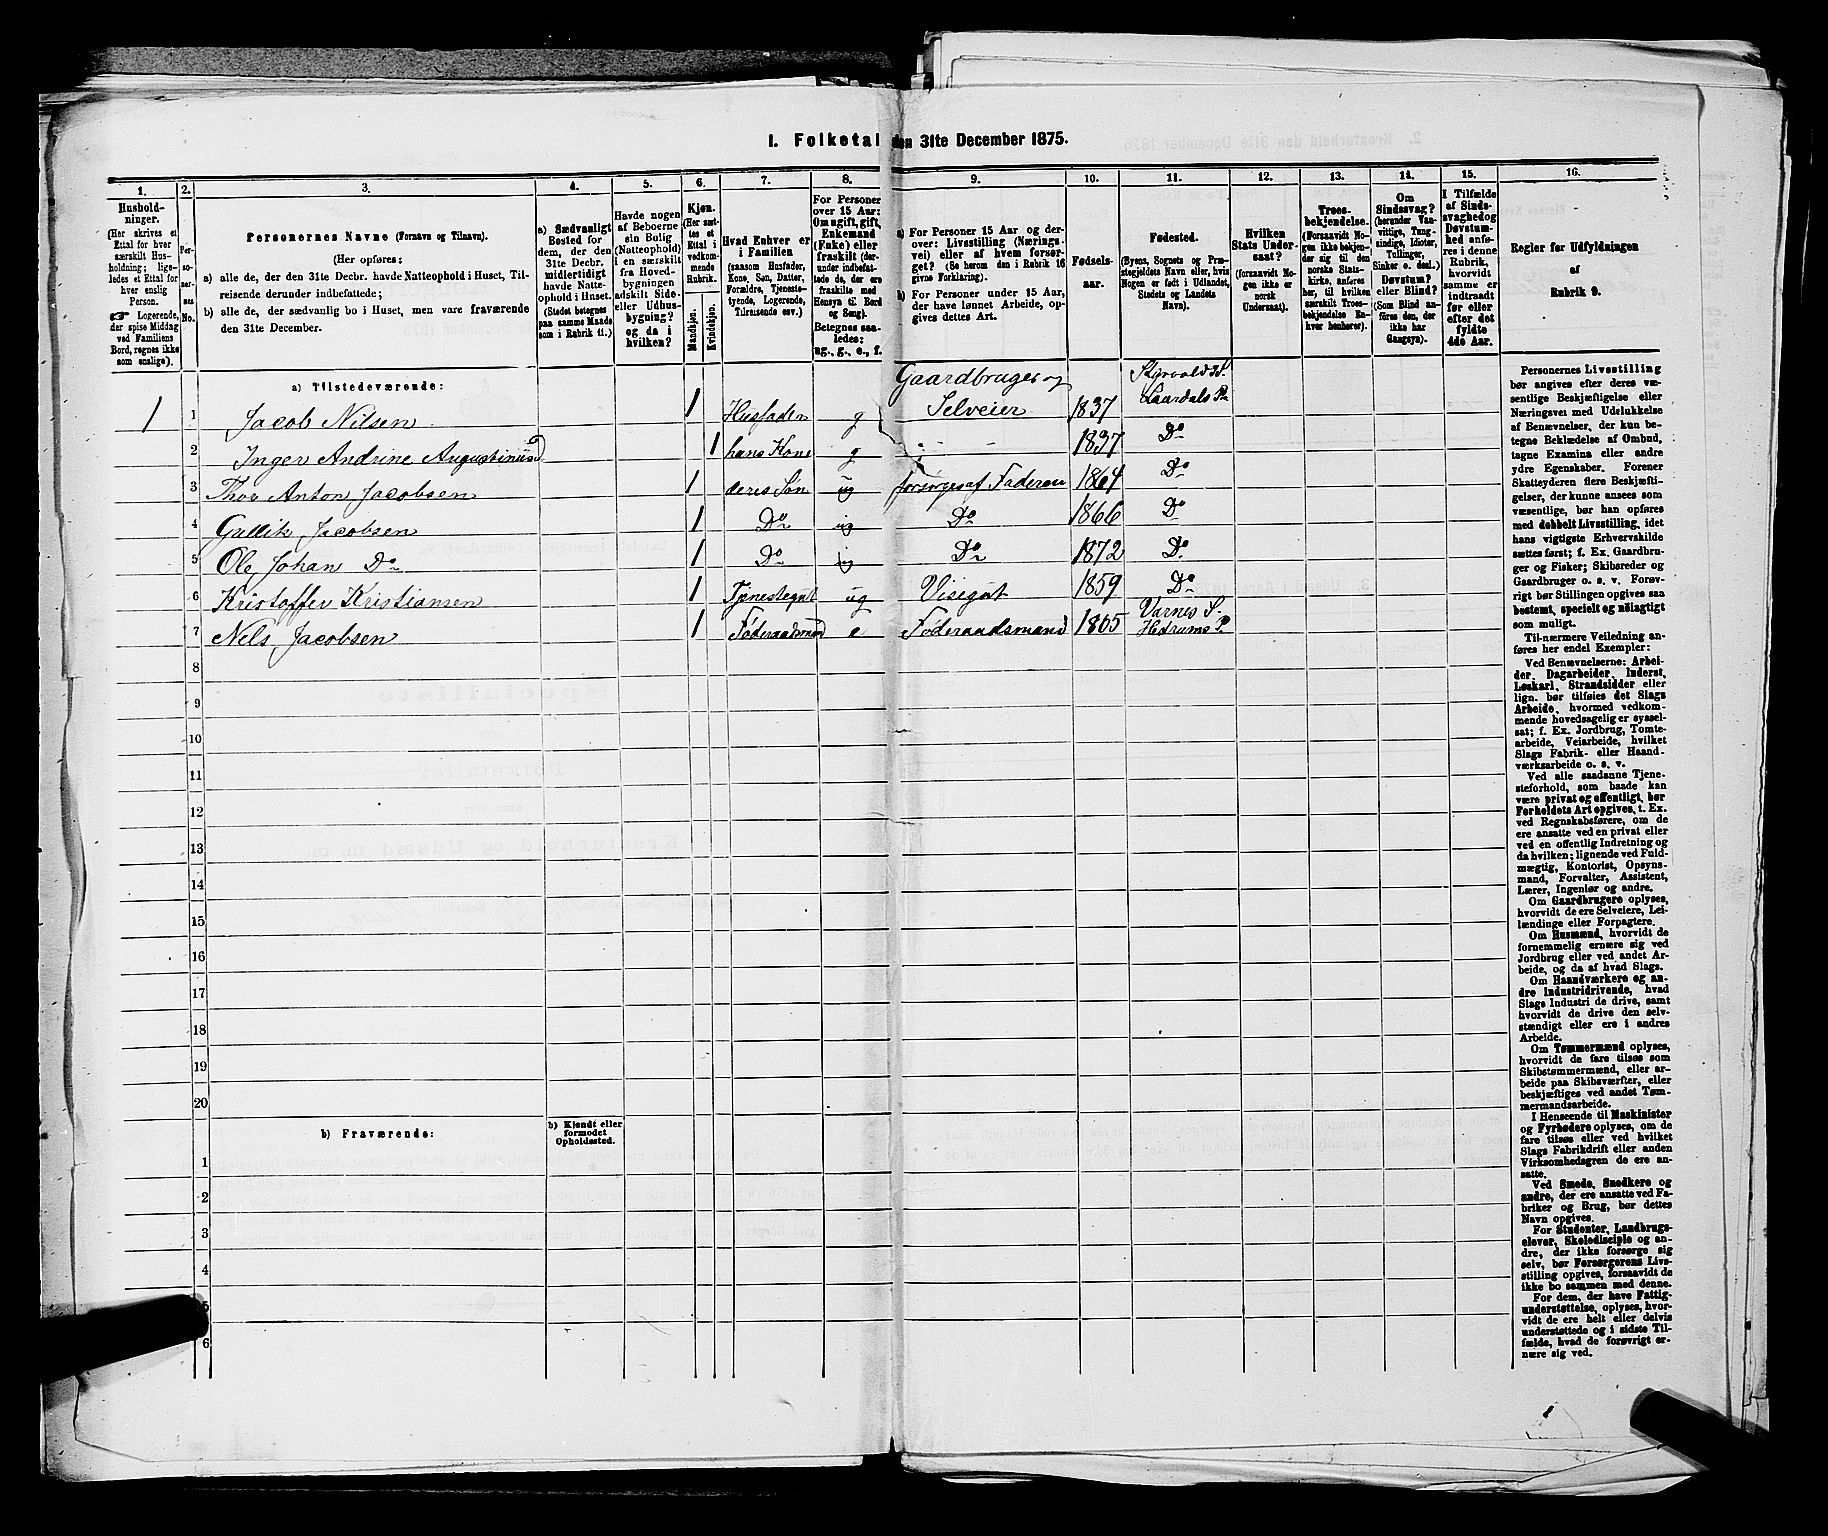 I. Folketal den 31te December 1875.
1. 2. 3. 4. 5. 6. 7. 8. 9. 10. 11. 12. 13. 14. 15. 16.
Hushold-
ninger.
(Her skrives et
Ettal for hver
særskilt Hus-
holdning; lige-
ledes et Ettal for
hver enslig
Person.
☞ Logerende,
der spise Middag
ved Familiens
Bord, regnes ikke
som enslige).
Per-
so-
ner-
nes
No.
Personernes Navne (Fornavn og Tilnavn).
(Her opføres:
a) alle de, der den 31te Decbr. havde Natteophold i Huset, Til-
reisende derunder indbefattede;
b) alle de, der sædvanlig bo i Huset, men vare fraværende
den 31te December.
a) Sædvanligt
Bosted for
dem, der den
31te Decbr.
midlertidigt
havde Natte-
ophold i Huset.
(Stedet betegnes
paa samme Maade
som i Rubrik 11.)
Havde nogen
af Beboerne
sin Bolig
(Natteophold)
i en særskilt
fra Hoved-
bygningen
adskilt Side-
eller Udhus-
bygning?
og da i
hvilken?
Kjøn.
(Her sæt-
tes et
Ettal i
vedkom-
mende
Rubrik.
Mandkjøn.
Kvindekjøn.
Hvad Enhver er
i Familien
(saasom Husfader,
Kone, Søn, Datter,
Forældre, Tjeneste-
tyende, Logerende,
Tilreisende osv.)
For Personer
over 15 Aar:
Om ugift, gift,
Enkemand
(Enke) eller
fraskilt (der-
under indbefat-
tede de, der ere
fraskilte med
Hensyn til Bord
og Seng).
Betegnes saa-
ledes:
ug., g., e., f.
a) For Personer 15 Aar og der-
over: Livsstilling (Nærings-
vei) eller af hvem forsør-
get? (Se herom den i Rubrik 16
givne Forklaring).
b) For Personer under 15 Aar,
der have lønnet Arbeide, op-
gives dettes Art.
Fødsels-
aar.
Fødested.
(Byens, Sognets og Præ-
stegjeldets Navn eller, hvis
Nogen er født i Udlandet,
Stedets og Landets
Navn).
Hvilken
Stats Under-
saat?
(forsaavidt No-
gen ikke er
norsk
Undersaat).
Troes-
bekjendelse.
(Forsaavidt No-
gen ikke bekjen-
der sig til den
norske Stats-
kirke, anføres
her, til hvilken
særskilt Troes-
bekjendelse En-
hver henhører).
Om
Sindssvag?
(herunder Van-
vittige, Tung-
sindige, Idioter,
Tullinger,
Sinker o. desl.)
Døvstum?
eller Blind?
(Som Blind an-
føres den, der
ikke har
Gangsyn).
I Tilfælde
af Sinds-
svaghed og
Døvstum-
hed anfø-
res i denne
Rubrik,
hvorvidt
samme er
indtraadt
før eller
efter det
fyldte
4de Aar.
Regler for Udfyldningen
af
Rubrik 9.
a) Tilstedeværende:
1 1 Jacob Nilsen 1 Husfader g Gaardbruger og Selveier 1837 Laardals P
2 Inger Andrine Augustinusd 1 hans Kone g 1837 Do
3 Thor Anton Jacobsen 1 deres Søn ug forsørges af Faderen 1864 Do
4 Gullik Jacobsen 1 Do ug Do 1866 Do
5 Ole Johan Do 1 Do ug Do 1872 Do
6 Kristoffer Kristiansen 1 Tjenestegut ug Visegut 1859 Do
7 Nils Jacobsen 1 Føderaadsmand e Føderaadsmand 1805 Varnes S. Hedrums P
8
9
10
11
12
13
14
15
16
17
18
19
20
b) Fraværende:
b) Kjendt eller
formodet
Opholdssted.
1
2
3
4
5
6
Personernes Livsstilling
bør angives efter deres væ-
sentlige Beskjæftigelse eller
Næringsvei med Udelukkelse
af Benævnelser, der kun be-
tegne Beklædelse af Ombud,
tagne Examina eller andre
ydre Egenskaber. Forener
Skatteyderen flere Beskjæfti-
gelser, der kunne ansees som
væsentlige, bør han opføres
med dobbelt Livsstilling, idet
hans vigtigste Erhvervskilde
sættes først; f. Ex. Gaardbru-
ger og Fisker; Skibsreder og
Gaardbruger o. s. v. Forøv-
rigt bør Stillingen opgives saa
bestemt, specielt og nøiagtigt
som muligt.
Til nærmere Veiledning an-
føres her endel Exempler:
Ved Benævnelserne: Arbei-
der, Dagarbeider, Inderst,
Løskarl, Strandsidder eller
lign. bør tilføies det Slags
Arbeide, hvormed vedkom-
mende hovedsagelig er syssel-
sat; f. Ex. Jordbrug, Tomte-
arbeide, Veiarbeide, hvilket
Slags Fabrik- eller Haand-
værksarbeide o. s. v.
Ved alle saadanne Tjene-
steforhold, som baade kan
være privat og offentligt, bør
Forholdets Art opgives, t. Ex.
ved Regnskabsførere, om de
ere ansatte ved en privat eller
ved en offentlig Indretning og
da hvilken; lignende ved Fuld-
mægtig, Kontorist, Opsyns-
mand, Forvalter, Assistent,
Lærer, Ingeniør og andre.
Om Gaardbrugere oplyses,
hvorvidt de ere Selveiere, Lei-
lendinge eller Forpagtere.
Om Husmænd, hvorvidt de
fornemmelig ernære sig ved
Jordbrug eller ved andet Ar-
beide, og da af hvad Slags.
Om Haandværkere og an-
dre Industridrivende, hvad
Slags Industri de drive, samt
hvorvidt de drive den selv-
stændigt eller ere i andres
Arbeide.
Om Tømmermænd oplyses,
hvorvidt de fare tilsøs som
Skibstømmermænd, eller ar-
beide paa Skibsværfter, eller
beskjæftiges ved andet Tøm-
mermandsarbeide.
I Henseende til Maskinister
og Fyrbødere oplyses, om de
fare tilsøs eller ved hvilket
Slags Fabrikdrift eller anden
Virksomhedsgren de ere an-
satte.
Ved Smede, Snedkere og
andre, der ere ansatte ved Fa-
briker og Brug, bør dettes
Navn opgives.
For Studenter, Landbrugs-
elever, Skoledisciple og an-
dre, der ikke forsørge sig
selv, bør Forsørgerens Livs-
stilling opgives, forsaavidt de
ikke bo sammen med denne.
For dem, der have Fattig-
understøttelse, oplyses, hvor-
vidt de ere helt eller delvis
understøttede og i sidste Til-
fælde, hvad de forøvrigt er-
nære sig ved.